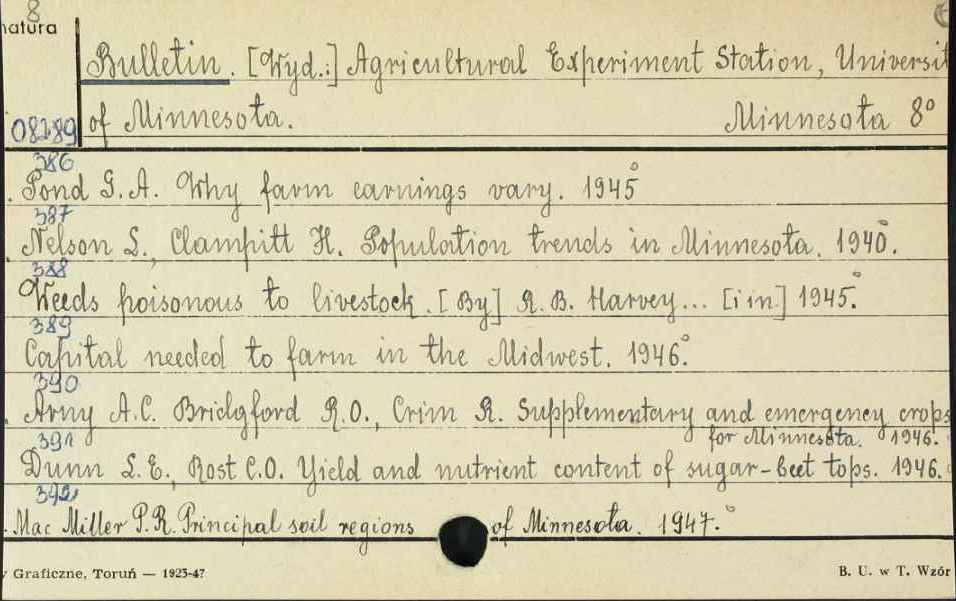 8
natura
Bulletin. [Wyd.:] Agricultural Experiment Station, Universit
08289 of Minnesota. Minnesota 8°
386
. Pond G.A. Why farm earnings vary. 1945
387
. Nelson L., Clampitt H. Population trends in Minnesota. 1940.
388
Weeds poisonous to livestock. [By] R.B. Harvey... [i in.] 1945.
389
Capital needed to farm in the Midwest. 1946.
390
. Arny A.C. Bridgford R.O., Crim R. Supplementary and emergency crops
for Minnesota. 1946.
391
Dunn L.E., Rost C.O. Yield and nutrient content of sugar-beet tops. 1946.
392
. Mac Miller P.R. Principal soil regions of Minnesota. 1947.
y Graficzne, Toruń — 1923-47 B. U. w T. Wzór